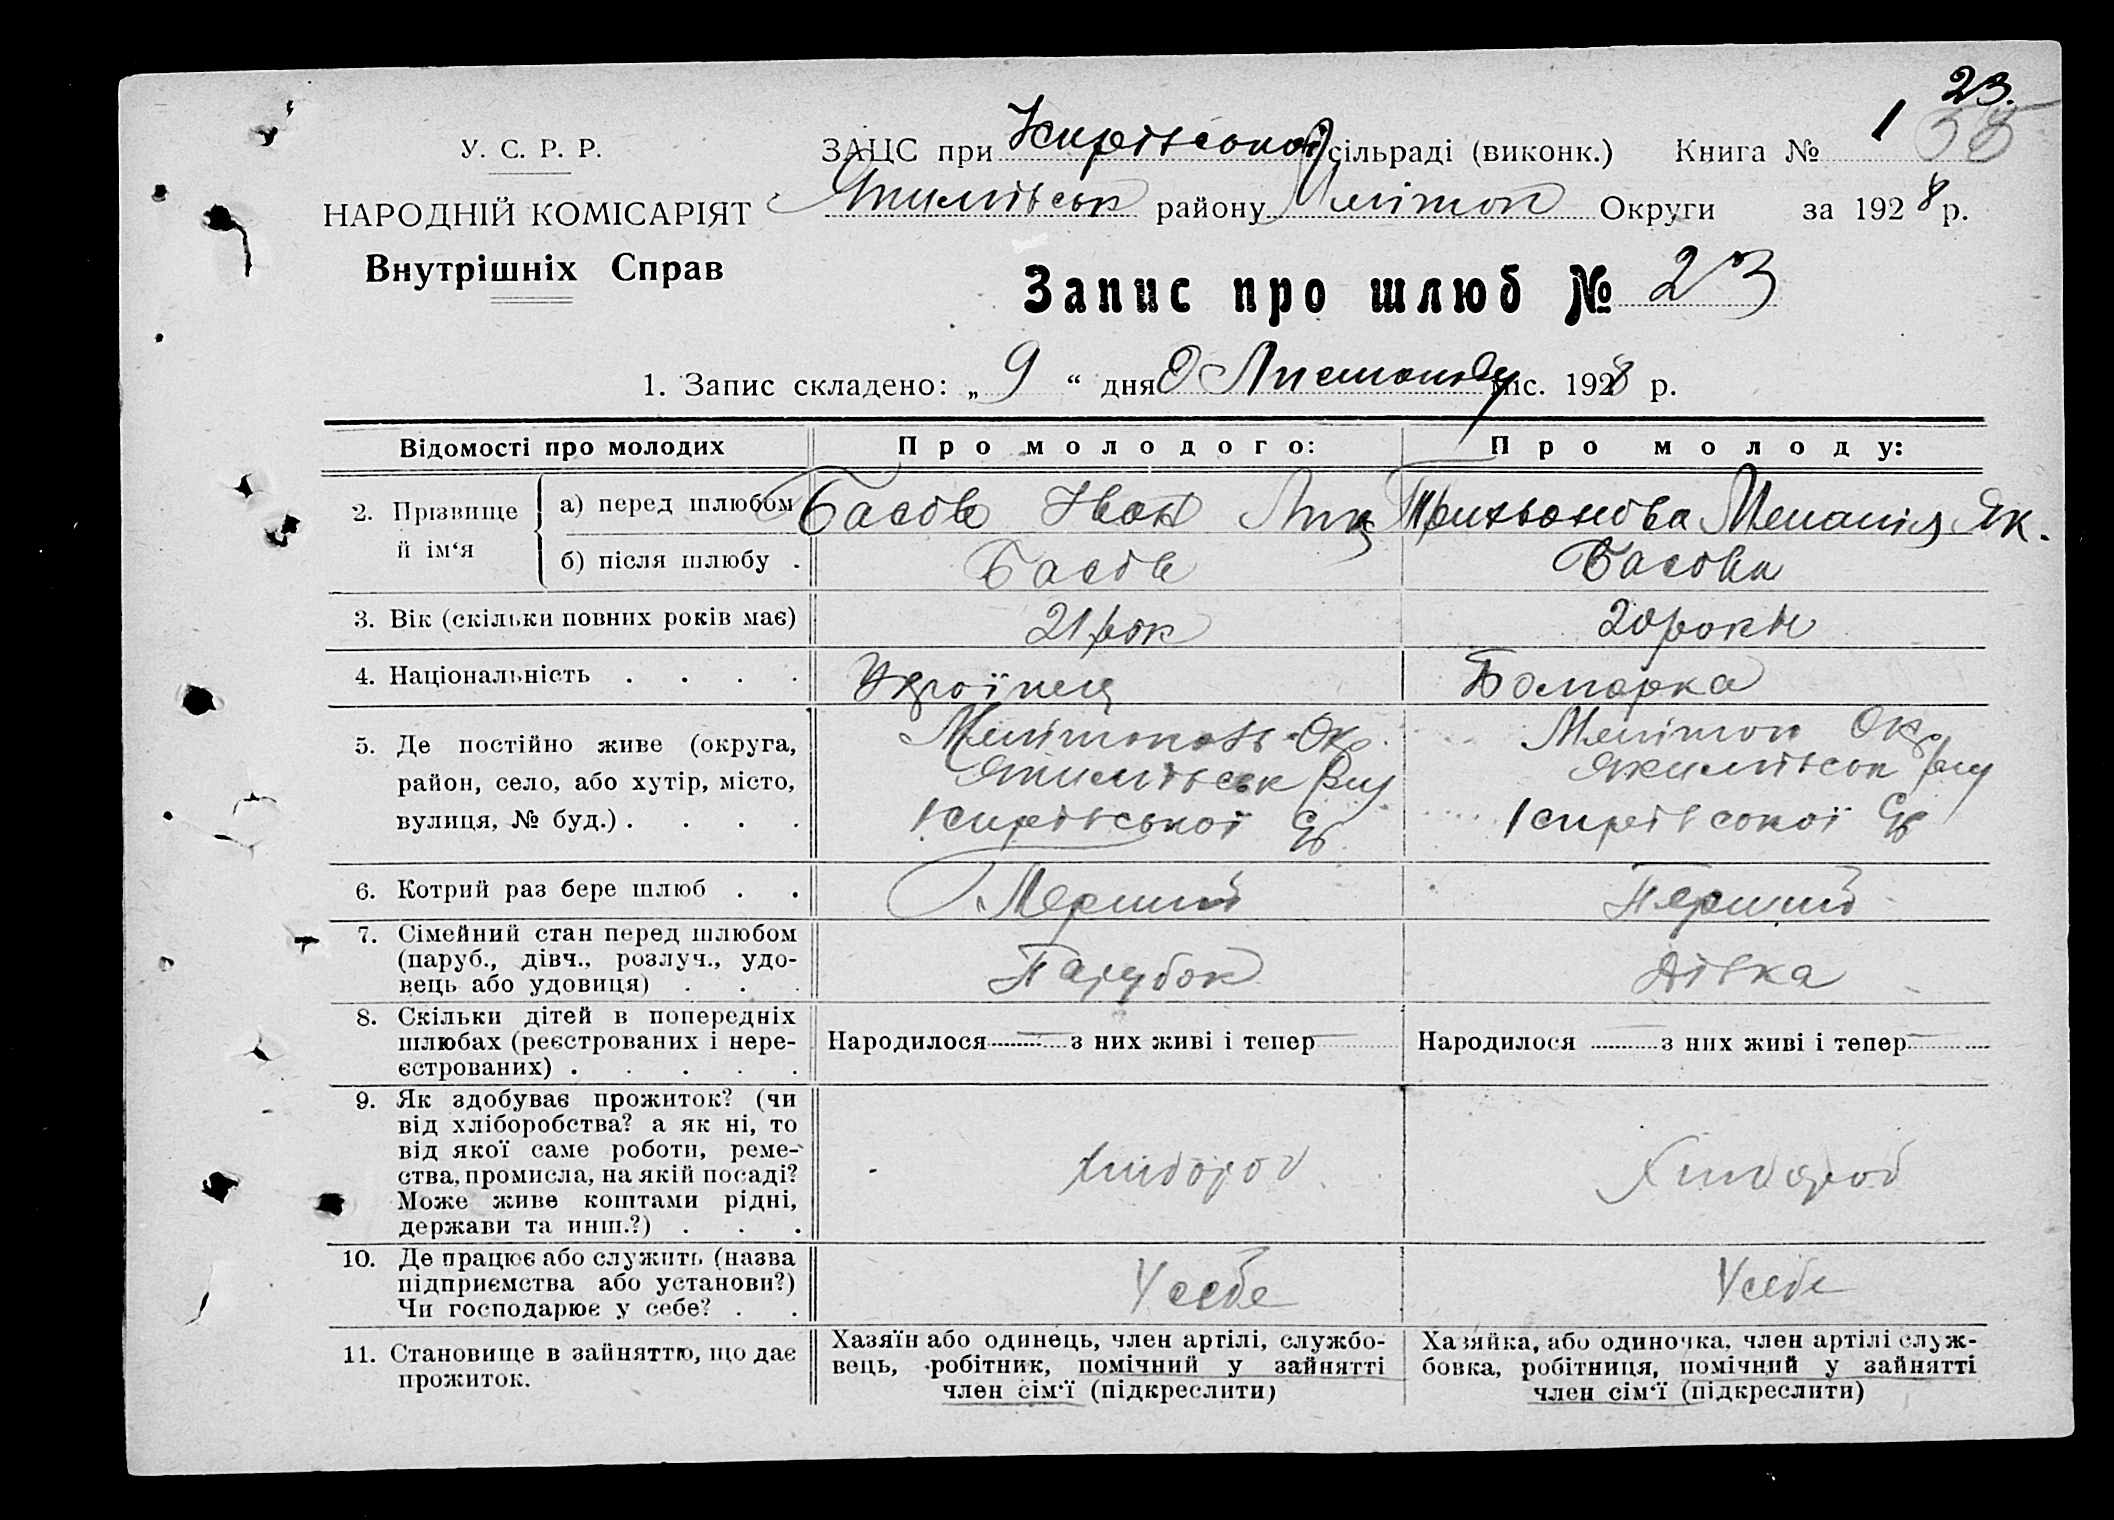 23.
У. С. Р. Р.
ЗАЦС при Кирівської сільраді (виконк.) Книга № 1 38
НАРОДНІЙ КОМІСАРІЯТ
Якимівськ району Мелітоп Округи за 1928 р.
Внутрішніх Справ
Запис про шлюб № 23
1. Запис складено: „ 9 “ дня Листопаду міс. 1928 р.
Відомості про молодих
Про молодого:
Про молоду:
2. Прізвище й ім‘я
а) перед шлюбом
Басів Іван
Меланія Як.
б) після шлюбу .
Басів
Басова
3. Вік (скільки повних років має)
21 рік
20 роки
4. Національність . . . .
Українец
Болгарка
5. Де постійно живе (округа,
район, село, або хутір, місто,
вулиця, № буд.) . . . .
Мелітоповь Окр.
Якимівськ Рну
Кирівської С/р
Мелітоп Окр.
Якимівськ Рну
Кирівської С/р
6. Котрий раз бере шлюб . .
Перший
Перший
7. Сімейний стан перед шлюбом
(паруб., дівч., розлуч., удо-
вець або удовиця) . . .
Парубок
Дівка
8. Скільки дітей в попередніх
шлюбах (реєстрованих і нере-
єстрованих) . . . . .
Народилося — з них живі і тепер —
Народилося — з них живі і тепер —
9. Як здобуває прожиток? (чи
від хліборобства? а як ні, то
від якої саме роботи, реме-
ства, промисла, на якій посаді?
Може живе коштами рідні,
держави та инш.?) . . .
Хлібороб
Хлібороб
10. Де працює або служить (назва
підприємства або установи?)
Чи господарює у себе? . .
У себе
У себе
11. Становище в зайняттю, що дає
прожиток.
Хазяїн або одинець, член артілі, службо-
вець, робітник, помічний у зайнятті
член сім‘ї (підкреслити)
Хазяйка, або одиночка, член артілі служ-
бовка, робітниця, помічний у зайнятті
член сім‘ї (підкреслити)